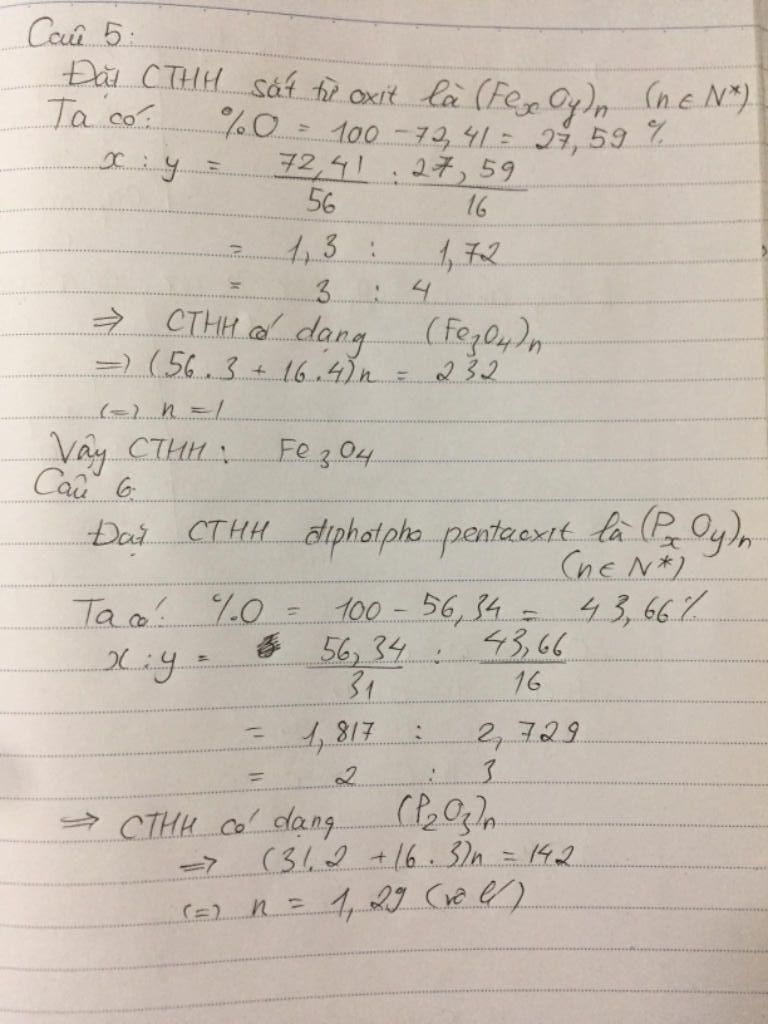 Câu 5:
Đặt CTHH sắt từ oxit là (FexOy)n (n ∈ N*)
Ta có: %O = 100 - 72,41 = 27,59 %
x : y = 72,41/56 : 27,59/16
= 1,3 : 1,72
= 3 : 4
⇒ CTHH có dạng (Fe3O4)n
=) (56.3 + 16.4)n = 232
(=) n = 1
Vậy CTHH : Fe3O4
Câu 6:
Đặt CTHH điphotpho pentaoxit là (PxOy)n
(n ∈ N*)
Ta có: %O = 100 - 56,34 = 43,66%
x : y = 56,34/31 : 43,66/16
= 1,817 : 2,729
= 2 : 3
⇒ CTHH có dạng (P2O3)n
⇒ (31.2 + 16.3)n = 142
(=) n = 1,29 (vô lí)